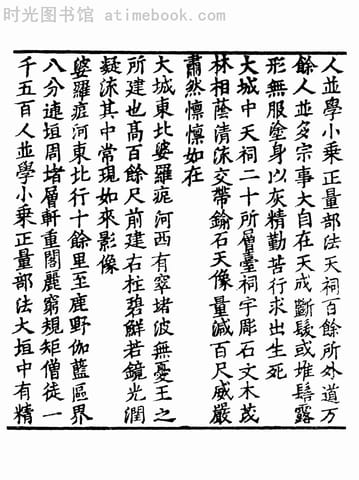 时光图书馆 - atimebook.com
人並學小乘正量部法天祠百餘所外道万
餘人並多宗事大自在天或斷髮或堆髻露
形無服塗身以灰精勤苦行求出生死
大城中天祠二十所層臺祠宇彫石文木茂
林相蔭清流交帶鍮石天像量減百尺威嚴
肅然懍懍如在
大城東北婆羅痆河西有窣堵波無憂王之
所建也高百餘尺前建右柱碧鮮若鏡光潤
凝流其中常現如來影像
婆羅痆河東北行十餘里至鹿野伽藍區界
八分連垣周堵層軒重閣麗窮規矩僧徒一
千五百人並學小乘正量部法大垣中有精